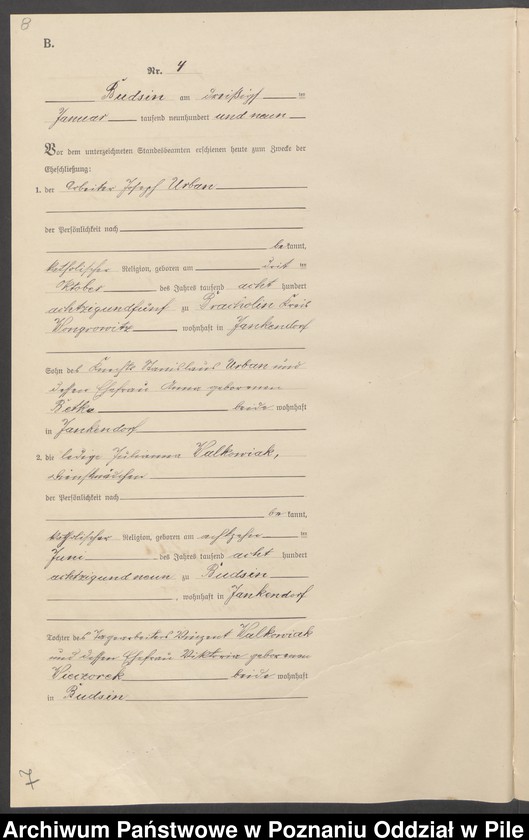 8
B.
Nr. 4
Budsin am dreißigsten
Januar tausend neunhundert und neun
Vor dem unterzeichneten Standesbeamten erschienen heute zum Zwecke der
Eheschließung:
1. der Arbeiter Joseph Urban
der Persönlichkeit nach
be kannt,
katholischer Religion, geboren am drit ten
Oktober des Jahres tausend acht hundert
achtzigundfünf zu Bracholin Kreis
Wongrowitz, wohnhaft in Jankendorf
Sohn des Knechts Stanislaus Urban und
dessen Ehefrau Anna geborenen
Betka beide wohnhaft
in Jankendorf
2. die ledige Julianna Walkowiak,
Dienstmädchen
der Persönlichkeit nach
be kannt,
katholischer Religion, geboren am achtzehn ten
Juni des Jahres tausend acht hundert
achtzigundneun zu Budsin
, wohnhaft in Jankendorf
Tochter des Tagearbeiters Vinzent Walkowiak
und dessen Ehefrau Viktoria geborenen
Wieczorek beide wohnhaft
in Budsin
7
Archiwum Państwowe w Poznaniu Oddział w Pile